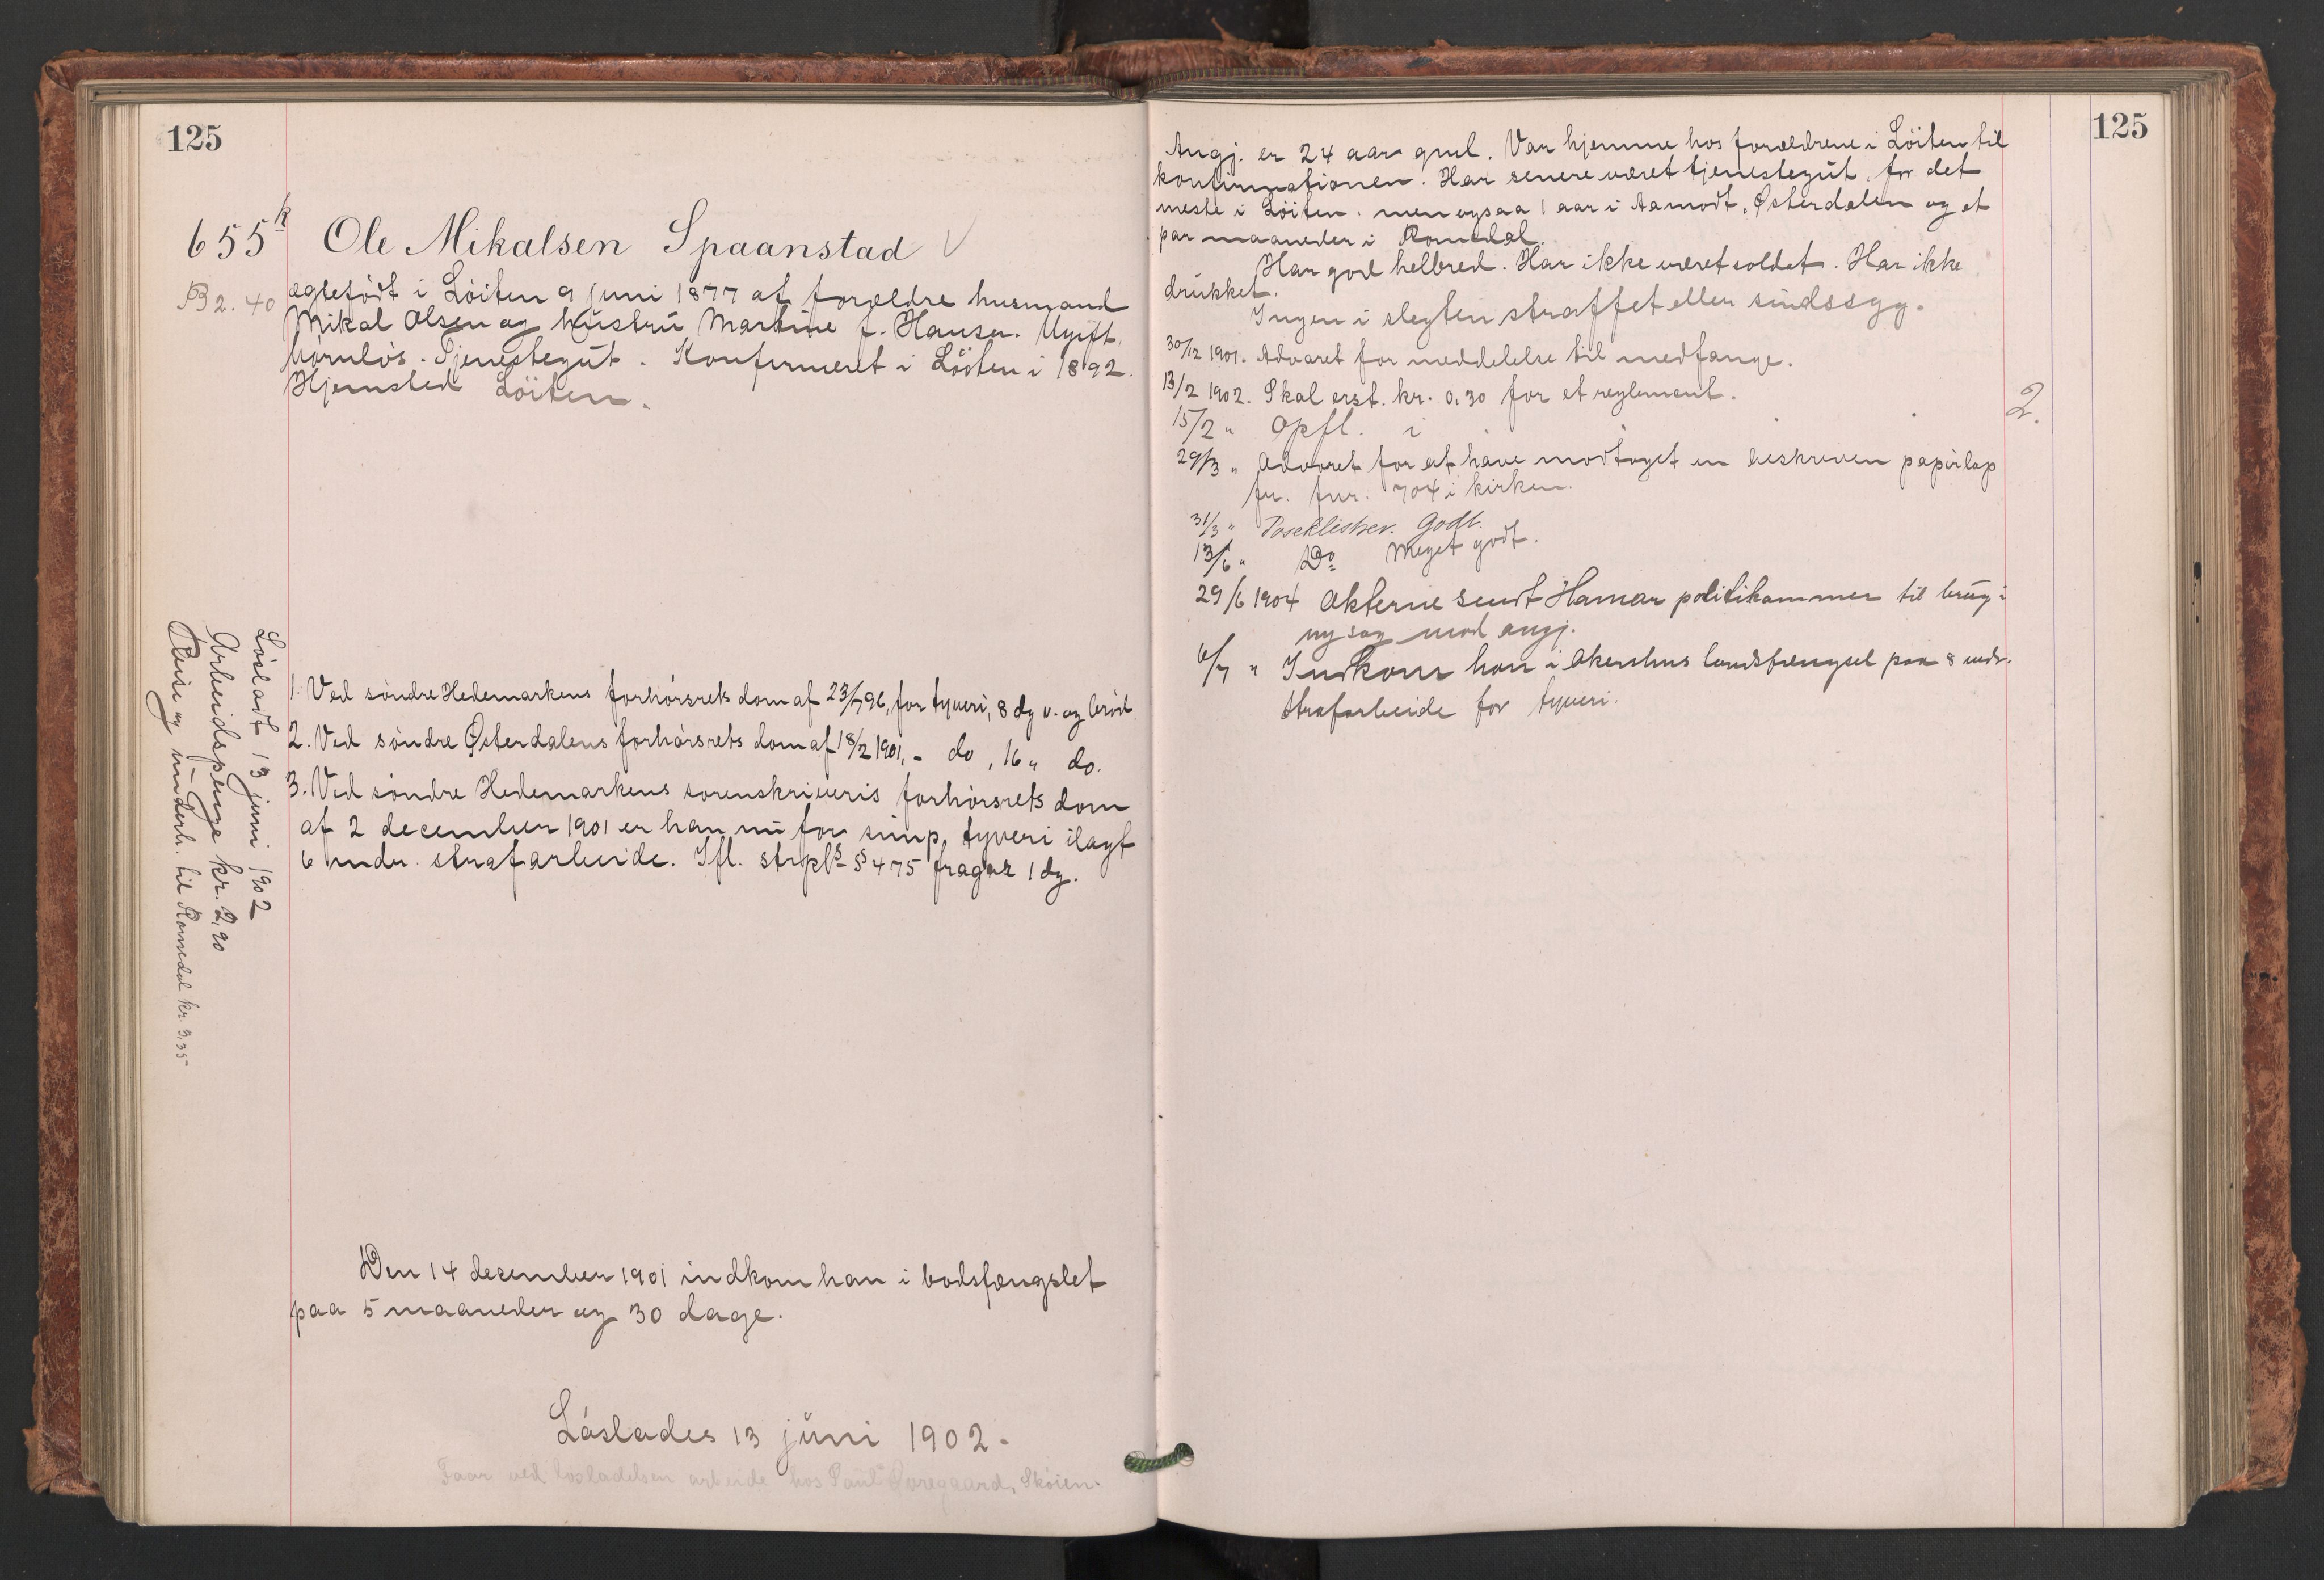 125
655 k Ole Mikalsen Spaanstad
B 2. 40 ægtefødt i Löiten 9 juni 1877 af forældre husmand
Mikal Olsen og hustru Martine f. Hansen. Ugift,
barnløs. Tjenestegut. Konfirmeret i Löiten i 1892.
Hjemsted Löiten.
1. Ved søndre Hedemarkens forhørsrets dom af 23/7 96, for tyveri, 8 dg v. og brød.
2. Ved søndre Østerdalens forhørsrets dom af 18/2 1901, - do, 16 „ do.
3. Ved søndre Hedemarkens sorenskriveris forhørsrets dom
af 2 december 1901 er han nu for simp. tyveri ilagt
6 mdr. strafarbeide. Ifl. strpls § 475 fragaar 1 dg.
Løsladt 13 juni 1902
Arbeidspenge kr. 2,90
Reise og underh. til Romedal kr. 3,35
Den 14 december 1901 indkom han i bodsfængslet
paa 5 maaneder og 30 dage.
Løslades 13 juni 1902.
Faar ved løsladelsen arbeide hos Paul Skøien.
125
Angj. er 24 aar gml. Var hjemme hos forældrene i Löiten til
konfirmationen. Har senere været tjenestegut, for det
meste i Löiten, men ogsaa 1 aar i Aamodt, Østerdalen og et
par maaneder i Romedal.
Har god helbred. Har ikke været soldat. Har ikke
drukket.
Ingen i slegten straffet eller sindssyg.
30/12 1901. Advaret for meddelelse til medfange.
13/2 1902. Skal erst. kr. 0,30 for et reglement.
15/2 „ Opfl. i 2.
29/3 „ Advaret for at have modtaget en beskreven papirlap
fr. fnr. 704 i kirken.
31/3 „ Poseklistrer. Godt.
13/6 „ Do Meget godt.
29/6 1904 Akterne sendt Hamar politikammer til brug i
ny sag mod angj.
6/7 „ Indkom han i Akershus landsfængsel paa 8 mdr.
strafarbeide for tyveri.